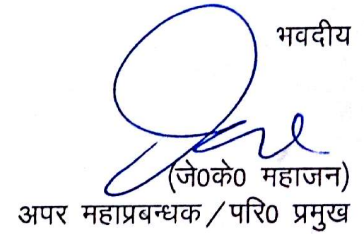 भवदीय
(जे0के0 महाजन)
अपर महाप्रबन्धक / परि0 प्रमुख